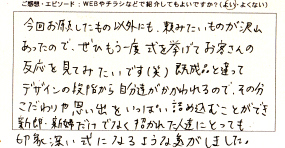 ご感想・エピソード：WEBやチラシなどで紹介してもよいですか？(よい・よくない)
今回お願いしたもの以外にも、頼みたいものが沢山
あったので、ぜひもう一度式を挙げてお客さんの
反応を見てみたいです(笑) 既成品と違って
デザインの段階から自分達がかかわれるので、その分
こだわりや思い出をいっぱい詰め込むことができ
新郎・新婦だけでなく招かれた人達にとっても
印象深い式になるような気がしました。